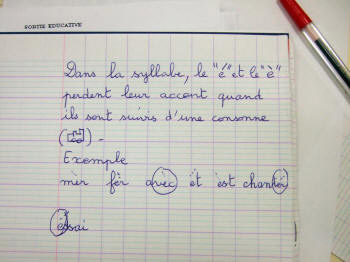 SORTIE EDUCATIVE
Dans la syllabe, le "é" et le "è"
perdent leur accent quand
ils sont suivis d'une consonne
( ).
Exemple
mèr fèr avèc èt èst chantér
éssai